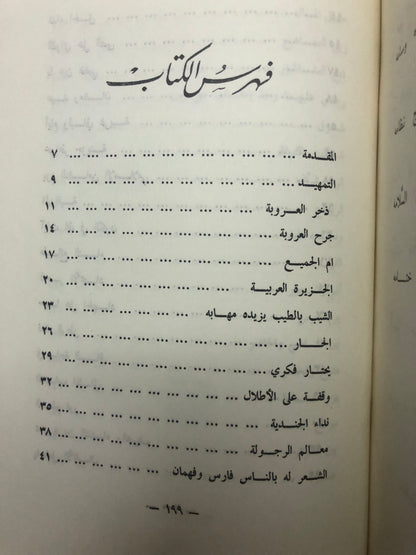 فهرس الكتاب
المقدمة ... ... ... ... ... ... ... ... ... ... ٧
التمهيد ... ... ... ... ... ... ... ... ... ... ٩
ذخر العروبة ... ... ... ... ... ... ... ... ... ١١
جرح العروبة ... ... ... ... ... ... ... ... ... ١٤
ام الجميع ... ... ... ... ... ... ... ... ... ١٧
الجزيرة العربية ... ... ... ... ... ... ... ... ٢٠
الشيب بالطيب يزيده مهابه ... ... ... ... ... ... ٢٣
الجار ... ... ... ... ... ... ... ... ... ... ٢٦
يحتار فكري ... ... ... ... ... ... ... ... ... ٢٩
وقفة على الأطلال ... ... ... ... ... ... ... ... ٣٢
نداء الجندية ... ... ... ... ... ... ... ... ... ٣٥
معالم الرجولة ... ... ... ... ... ... ... ... ... ٣٨
الشعر له بالناس فارس وفهمان ... ... ... ... ... ٤١
– ١٩٩ –